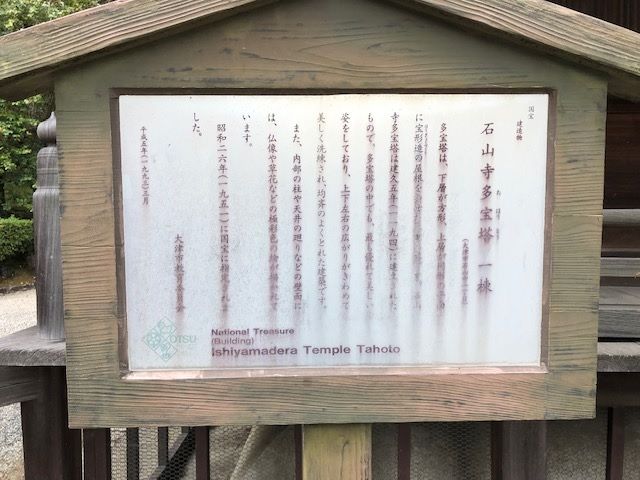 国宝 建造物
石山寺多宝塔 一棟
(大津市石山寺一丁目)
多宝塔は、下層が方形、上層が円形の
に宝形造の屋根を
寺多宝塔は建久五年(一一九四)に建まれた
もので、多宝塔の中でも、最も優れて美しい
姿をしており、上下左右の広がりがきわめて
美しく洗練され、均斉のよくとれた建築です。
また、内部の柱や天井の廻りなどの壁面に
は、仏像や草花などの極彩色の絵が描かれて
います。
昭和二六年(一九五一)に国宝に指定されま
した。
大津市教育委員会
平成五年(一九九三)三月
OTSU
National Treasure
(Building)
Ishiyamadera Temple Tahoto